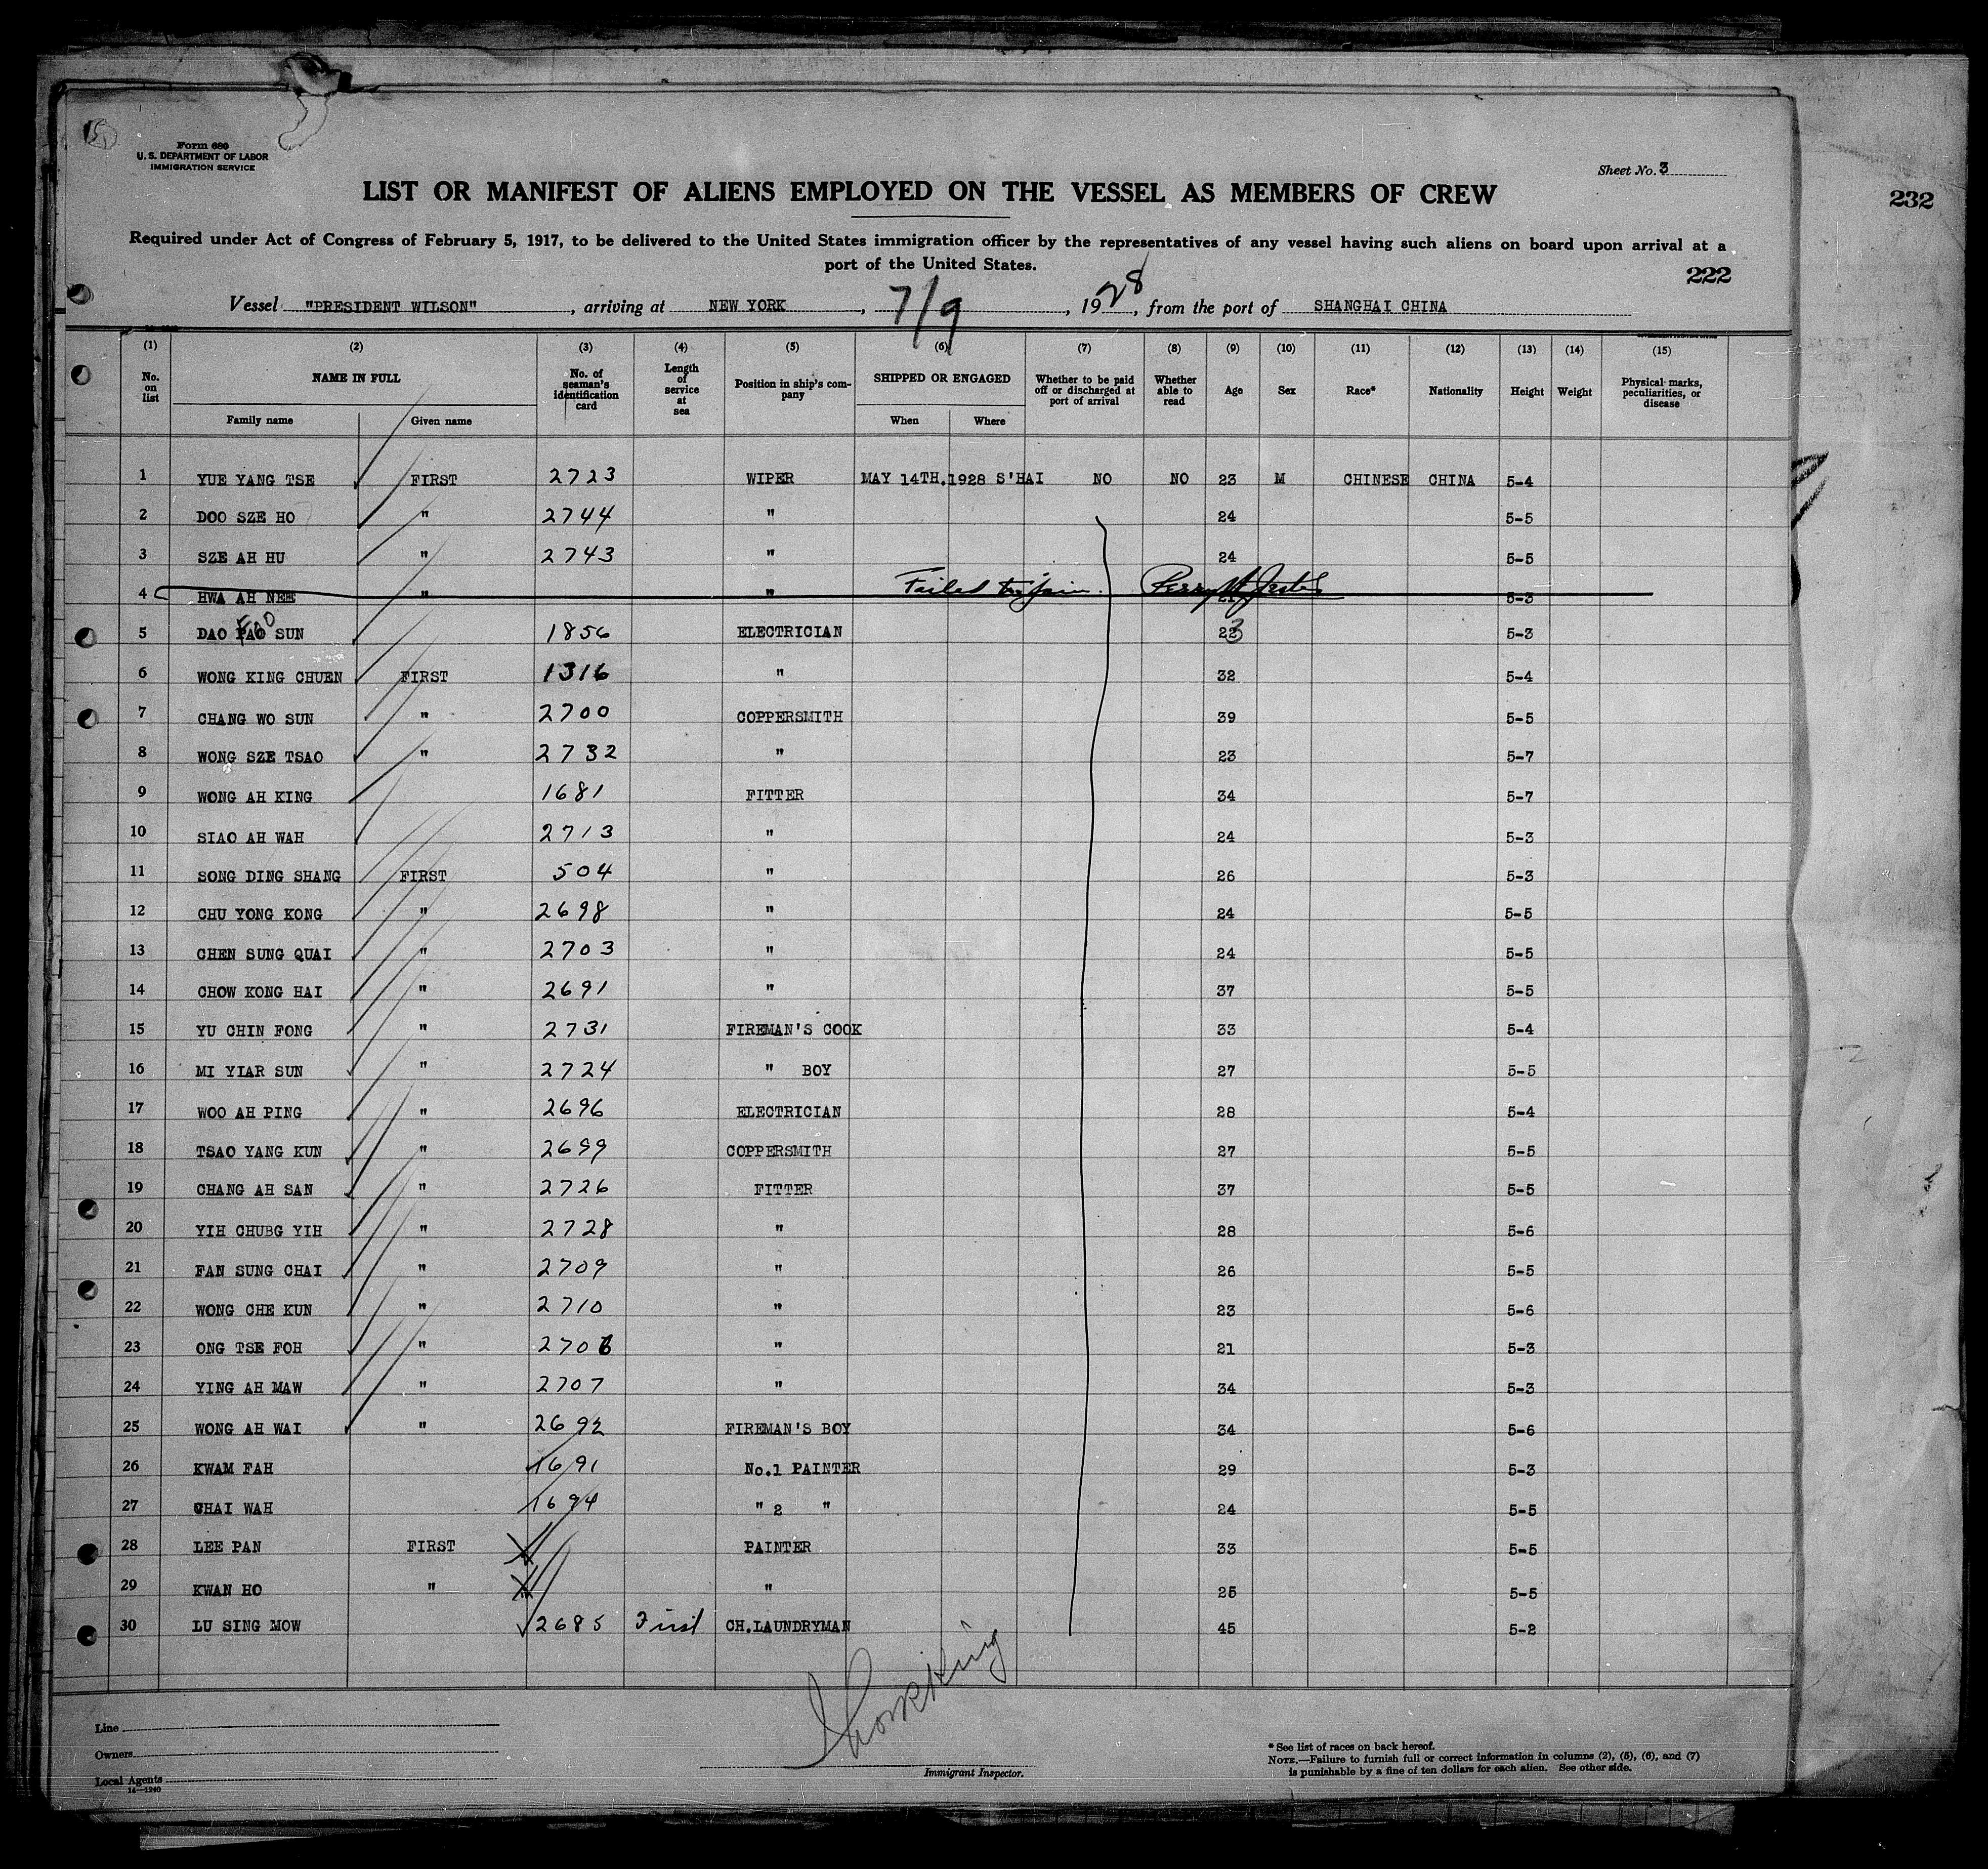 Form 680
U. S. DEPARTMENT OF LABOR
IMMIGRATION SERVICE
Sheet No. 3
LIST OR MANIFEST OF ALIENS EMPLOYED ON THE VESSEL AS MEMBERS OF CREW
232
Required under Act of Congress of February 5, 1917, to be delivered to the United States immigration officer by the representatives of any vessel having such aliens on board upon arrival at a
port of the United States.
222
Vessel "PRESIDENT WILSON", arriving at NEW YORK, 7/9, 1928, from the port of SHANGHAI CHINA
(1) (2) (3) (4) (5) (6) (7) (8) (9) (10) (11) (12) (13) (14) (15)
No. on list NAME IN FULL No. of seaman's identification card Length of service at sea Position in ship's company SHIPPED OR ENGAGED Whether to be paid off or discharged at port of arrival Whether able to read Age Sex Race* Nationality Height Weight Physical marks, peculiarities, or disease
Family name Given name When Where
1 YUE YANG TSE FIRST 2723 WIPER MAY 14TH.1928 S'HAI NO NO 23 M CHINESE CHINA 5-4
2 DOO SZE HO " 2744 " 24 5-5
3 SZE AH HU " 2743 " 24 5-5
4 HWA AH NEE " " Failed to join. 21 5-3
5 DAO PAO SUN 1856 ELECTRICIAN 23 5-3
6 WONG KING CHUEN FIRST 1316 " 32 5-4
7 CHANG WO SUN " 2700 COPPERSMITH 39 5-5
8 WONG SZE TSAO " 2732 " 23 5-7
9 WONG AH KING 1681 FITTER 34 5-7
10 SIAO AH WAH 2713 " 24 5-3
11 SONG DING SHANG FIRST 504 " 26 5-3
12 CHU YONG KONG " 2698 " 24 5-5
13 CHEN SUNG QUAI " 2703 " 24 5-5
14 CHOW KONG HAI " 2691 " 37 5-5
15 YU CHIN FONG " 2731 FIREMAN'S COOK 33 5-4
16 MI YIAR SUN " 2724 " BOY 27 5-5
17 WOO AH PING " 2696 ELECTRICIAN 28 5-4
18 TSAO YANG KUN " 2699 COPPERSMITH 27 5-5
19 CHANG AH SAN " 2726 FITTER 37 5-5
20 YIH CHUBG YIH " 2728 " 28 5-6
21 FAN SUNG CHAI " 2709 " 26 5-5
22 WONG CHE KUN " 2710 " 23 5-6
23 ONG TSE FOH " 2706 " 21 5-3
24 YING AH MAW " 2707 " 34 5-3
25 WONG AH WAI " 2692 FIREMAN'S BOY 34 5-6
26 KWAM FAH 1691 No.1 PAINTER 29 5-3
27 CHAI WAH 1694 " 2 " 24 5-5
28 LEE PAN FIRST PAINTER 33 5-5
29 KWAN HO " " 25 5-5
30 LU SING MOW 2685 First CH.LAUNDRYMAN 45 5-2
Line
Owners
Local Agents
14—1240
Immigrant Inspector.
* See list of races on back hereof.
NOTE.—Failure to furnish full or correct information in columns (2), (5), (6), and (7)
is punishable by a fine of ten dollars for each alien. See other side.